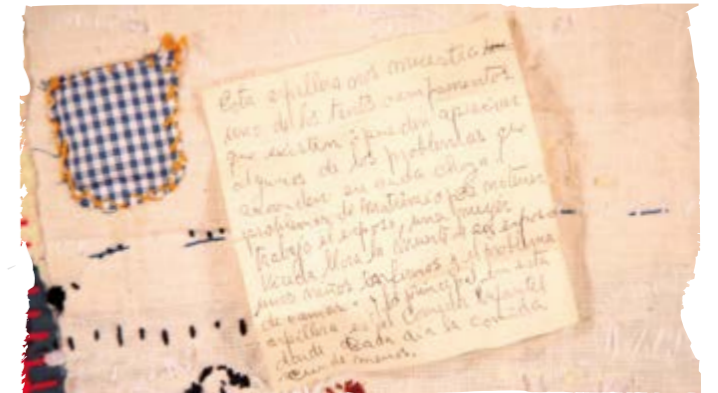 Esta arpillera nos muestra
uno de los tantos campamentos
que existen i pueden apreciar
algunos de los problemas que
en cada choza
problemas de matrimonio por no tener
trabajo el esposo, una mujer
viuda llora la muerte de su esposo
unos niños enfermos y el problema
de camas. i lo principal en esta
arpillera es el Comedor Infantil
donde cada dia la comida
es menos.